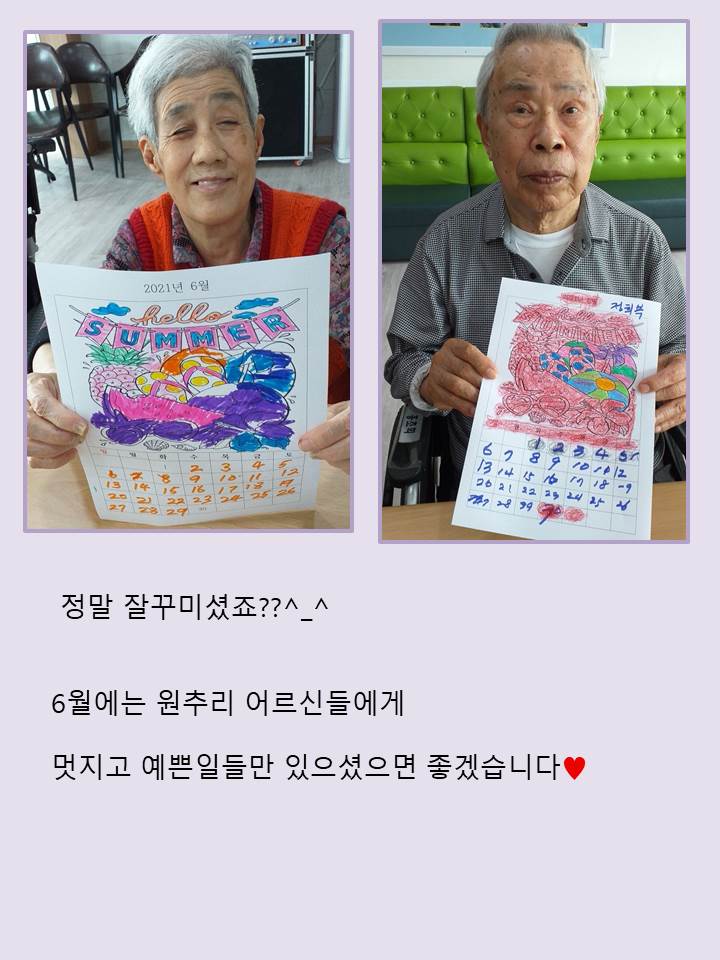 2021년 6월
hello
SUMMER
일 월 화 수 목 금 토
2 3 4 5
6 7 8 9 10 11 12
13 14 15 16 17 18 19
20 21 22 23 24 25 26
27 28 29 30
정희복
hello
SUMMER
1 2 3 4 5
6 7 8 9 10 11 12
13 14 15 16 17 18 19
20 21 22 23 24 25 26
27 28 29 30
정말 잘꾸미셨죠??^_^
6월에는 원추리 어르신들에게
멋지고 예쁜일들만 있으셨으면 좋겠습니다♥